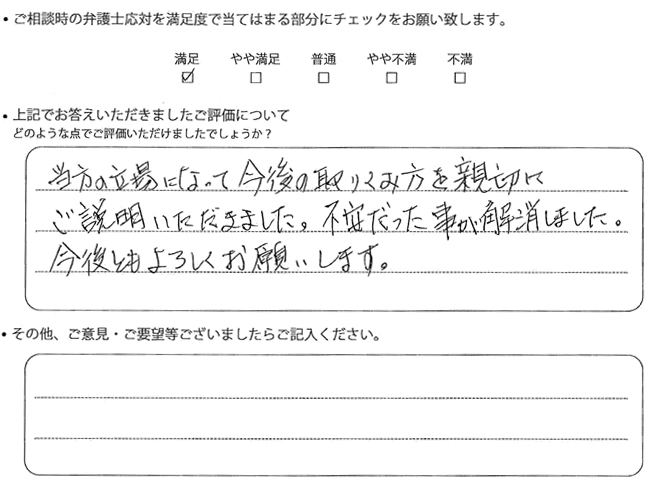 • ご相談時の弁護士応対を満足度で当てはまる部分にチェックをお願い致します。
満足 やや満足 普通 やや不満 不満
☑ □ □ □ □
• 上記でお答えいただきましたご評価について
どのような点でご評価いただけましたでしょうか？
当方の立場になって今後の取りくみ方を親切に
ご説明いただきました。不安だった事が解消しました。
今後ともよろしくお願いします。
• その他、ご意見・ご要望等ございましたらご記入ください。